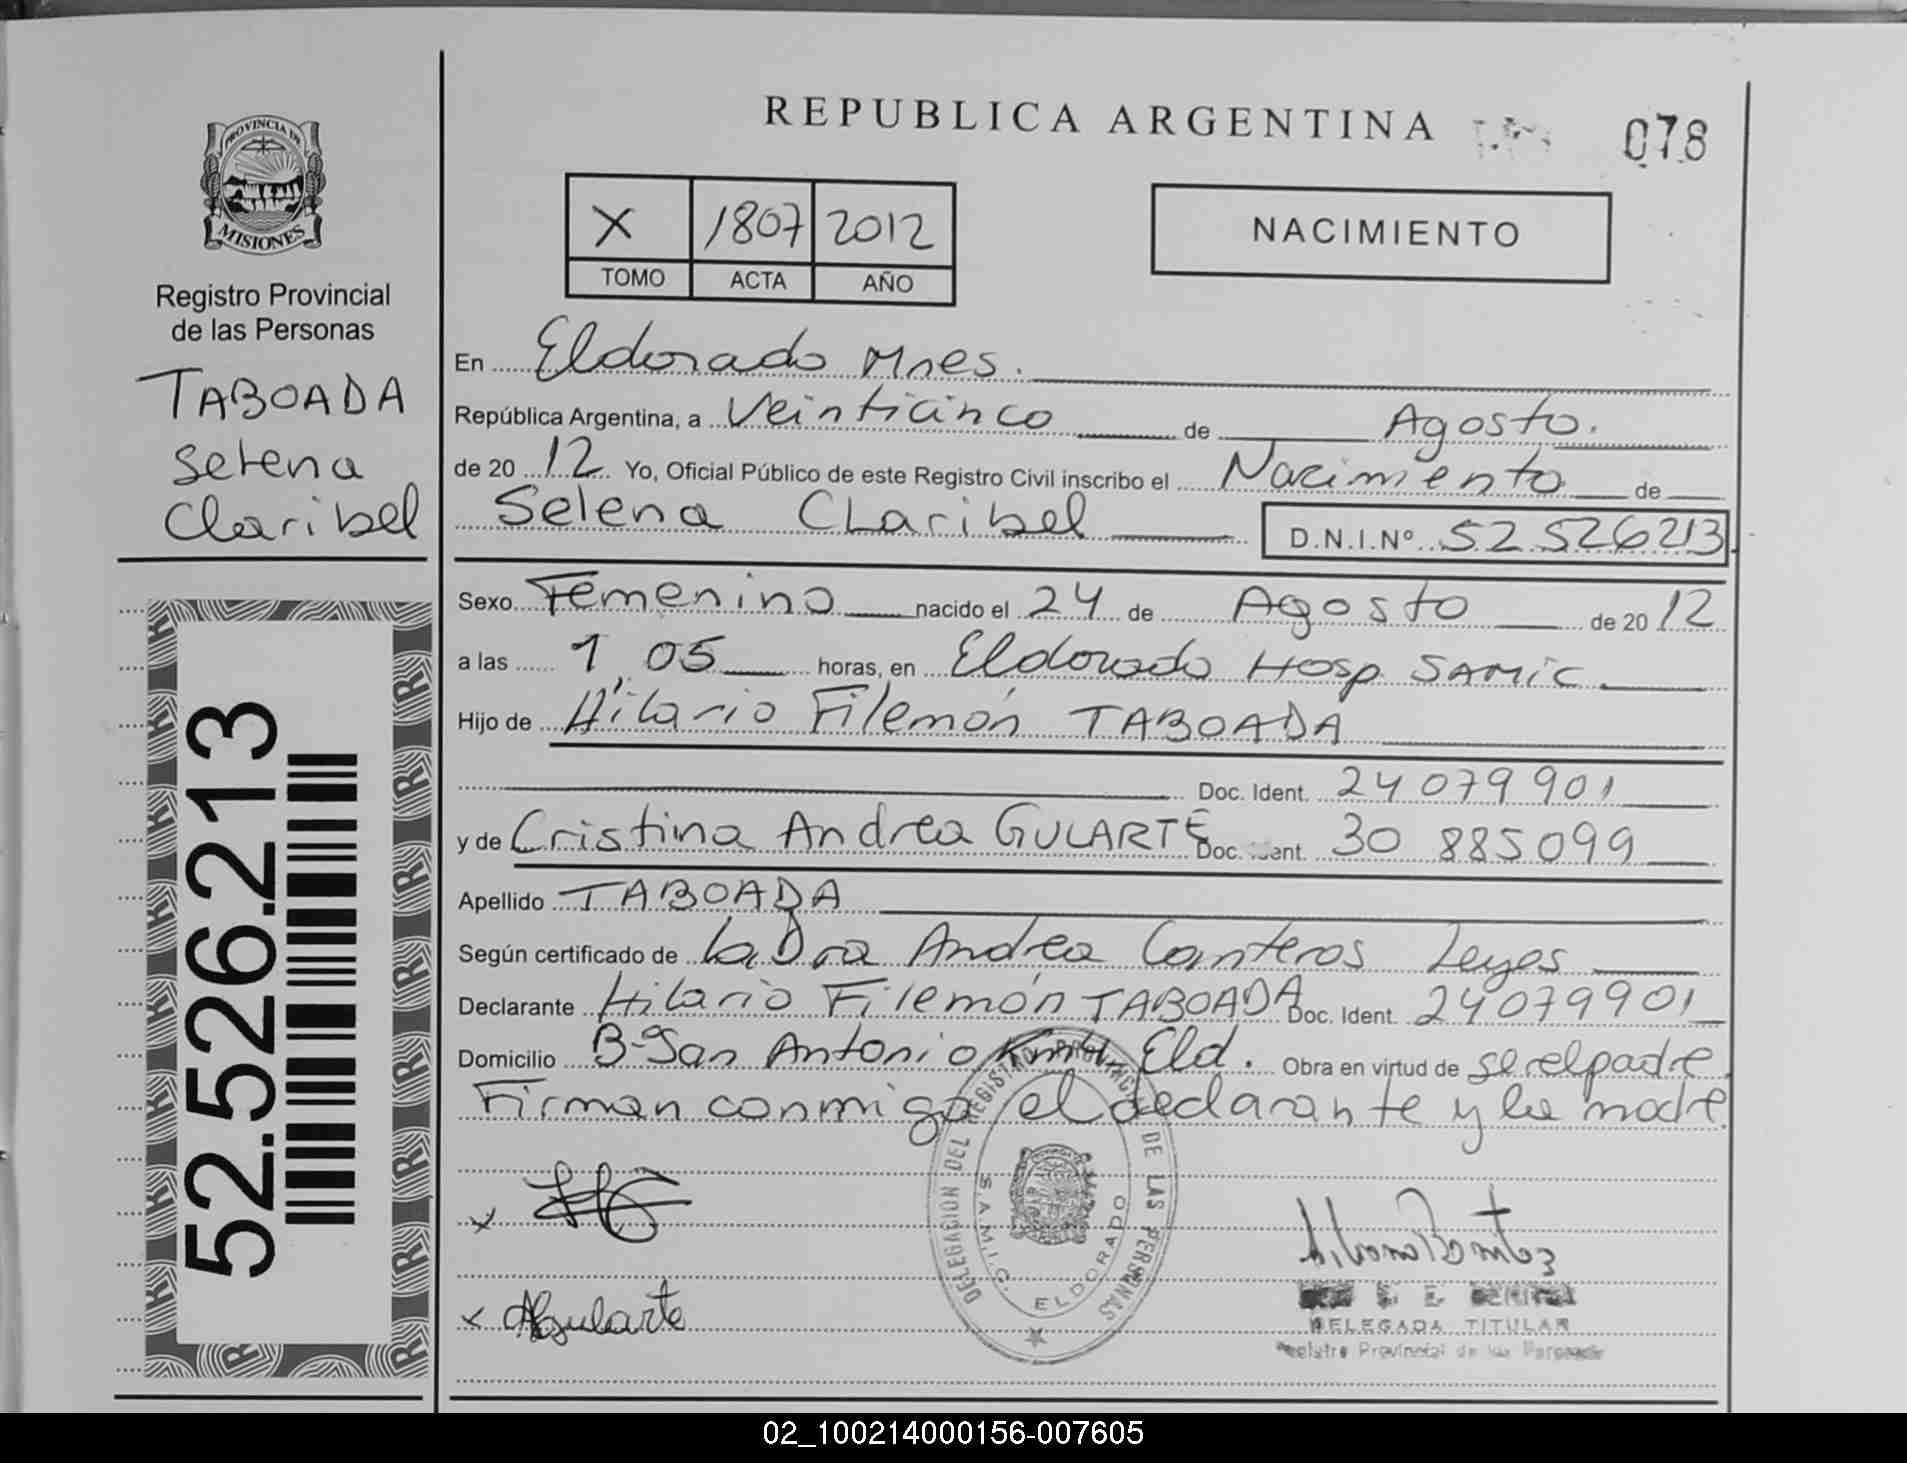 PROVINCIA DE
MISIONES
Registro Provincial
de las Personas
TABOADA
Selena
Claribel
52.526.213
REPUBLICA ARGENTINA
078
X 1807 2012
TOMO ACTA AÑO
NACIMIENTO
En Eldorado Mnes.
República Argentina, a Veinticinco de Agosto.
de 20 12 Yo, Oficial Público de este Registro Civil inscribo el Nacimiento de
Selena Claribel D.N.I.Nº 52 526213
Sexo Femenino nacido el 24 de Agosto de 20 12
a las 1 05 horas, en Eldorado Hosp SAMIC
Hijo de Hilario Filemón TABOADA
Doc. Ident. 24 079 901
y de Cristina Andrea GULARTE Doc. Ident. 30 885099
Apellido TABOADA
Según certificado de la Dra Andrea Canteros Leyes
Declarante Hilario Filemón TABOADA Doc. Ident. 24079901
Domicilio B-San Antonio Eld. Obra en virtud de ser el padre
Firman conmigo el declarante y la madre
x
x AGularte
DELEGACION DEL REGISTRO PROVINCIAL DE LAS PERSONAS
S.A.M.I.C. ELDORADO
DELEGADA TITULAR
Registro Provincial de las Personas
02_100214000156-007605